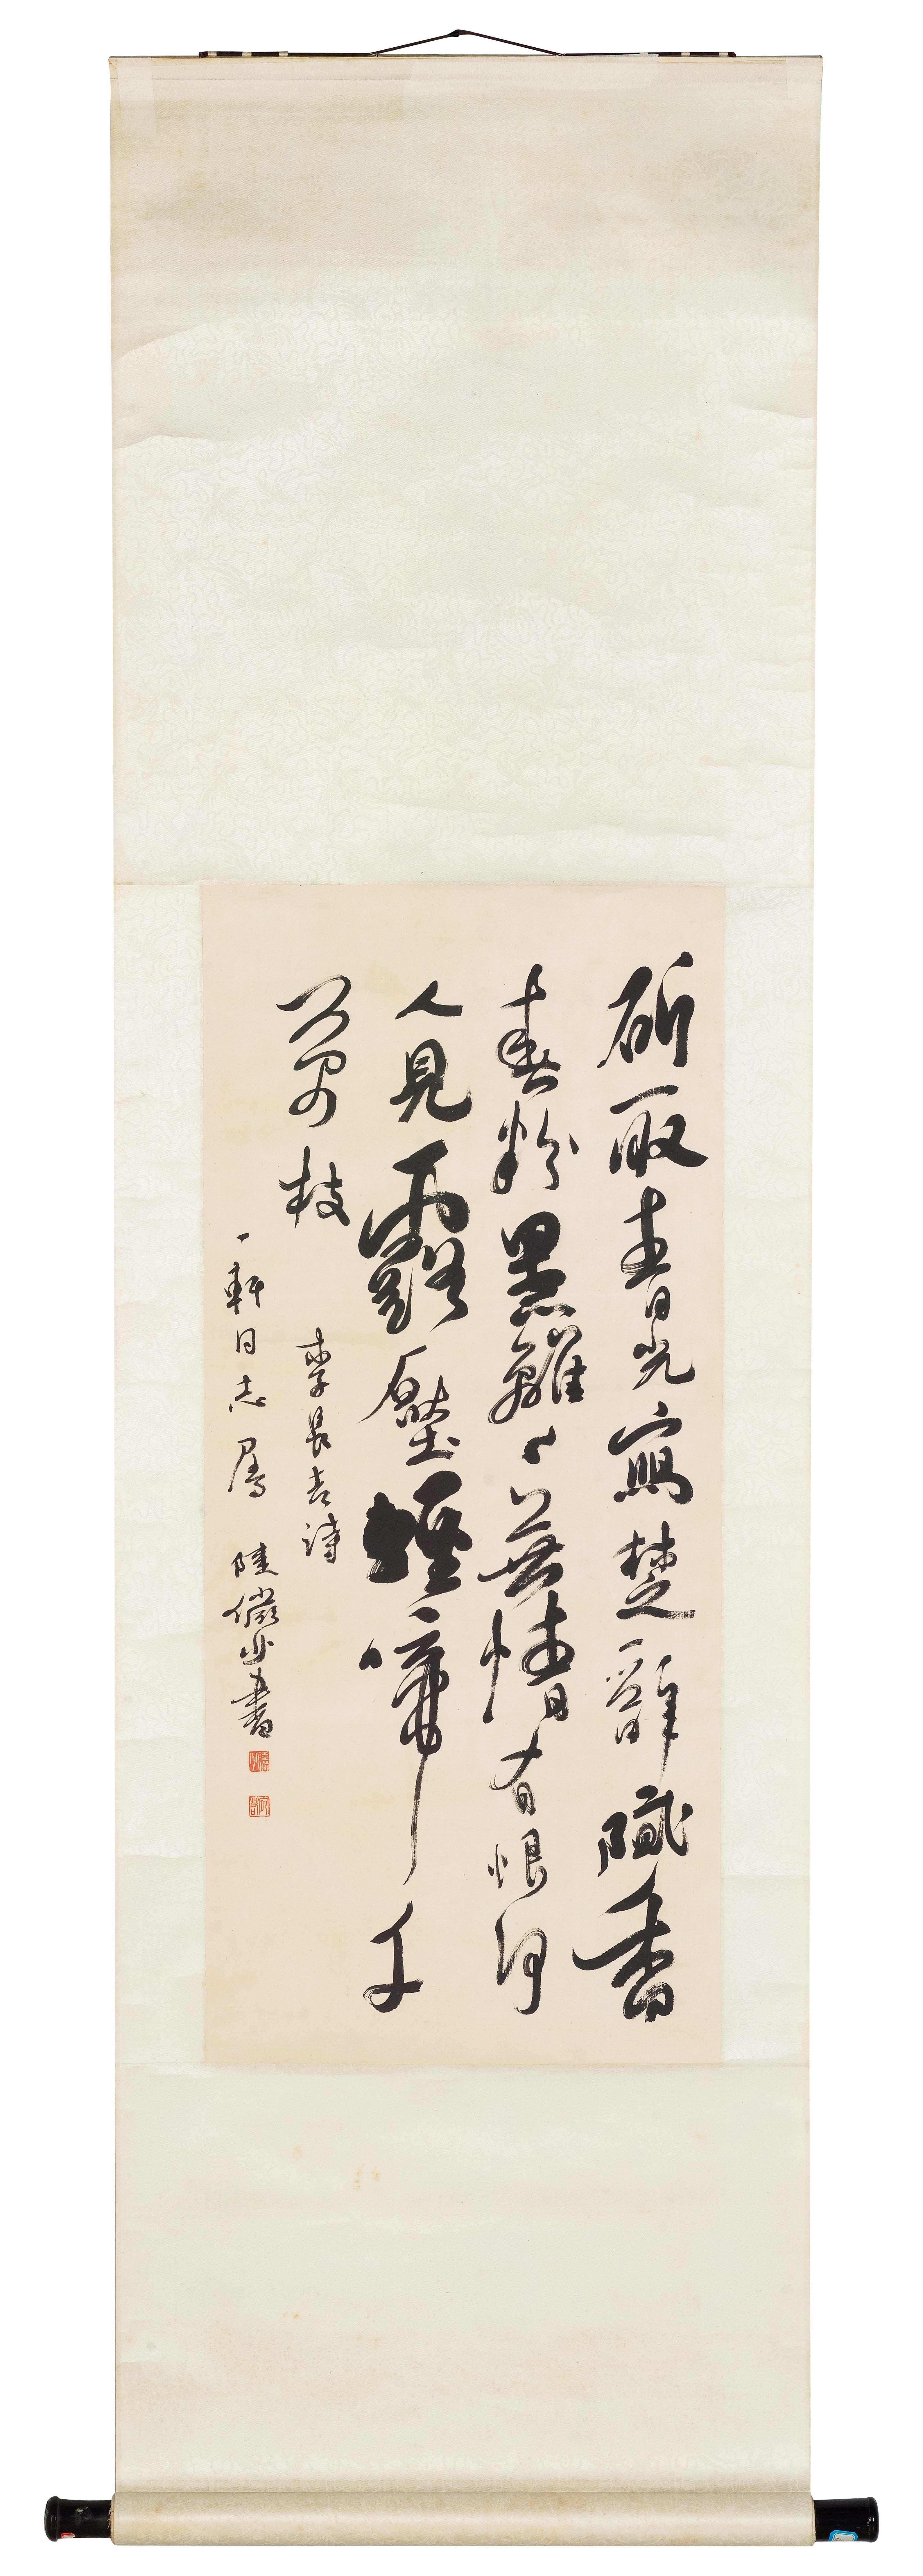 斫取青光寫楚辭膩香
春粉黑離〻無情有恨何
人見露壓煙啼千
萬枝
李長吉詩
一軒同志屬 陸儼少書